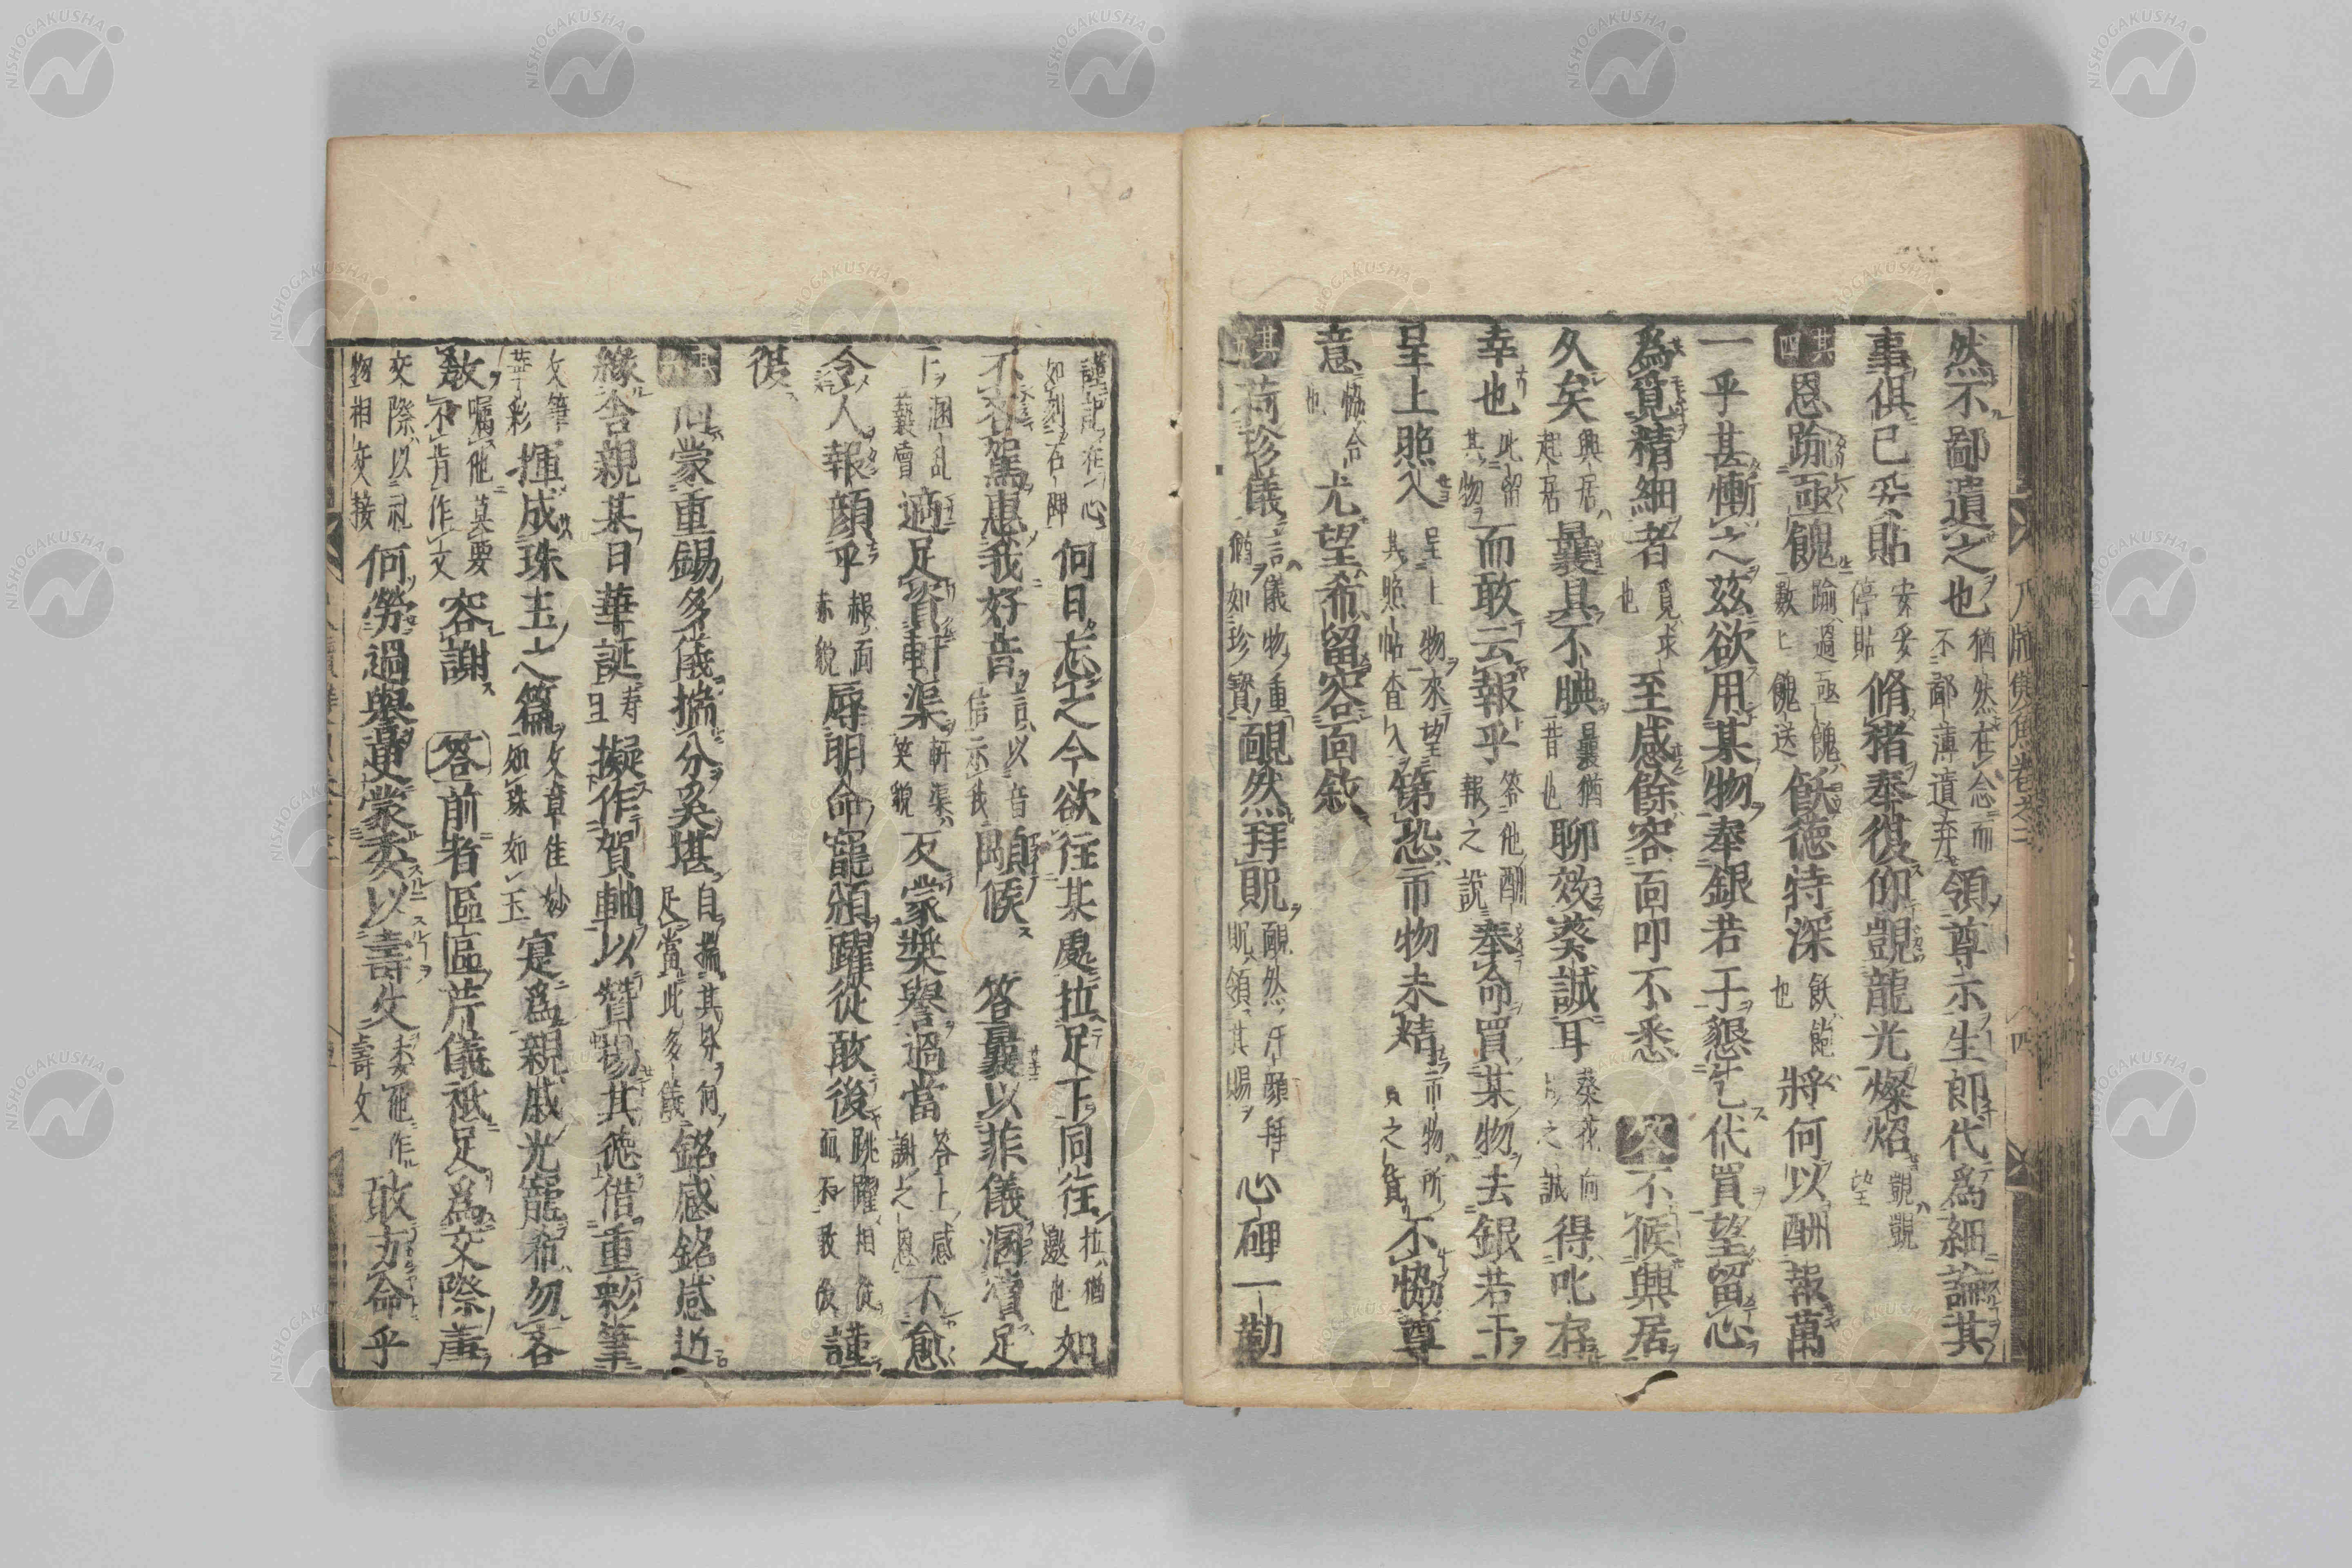 然不鄙遺之也 猶然在念而不鄙薄遺弃 領尊示生即代為細論其
事俱已妥貼 安妥停貼 脩楮奉復仰覬龍光燦炤 覬覬望
其四 恩踰亟餽 踰過亟餽數上餽送 飫德特深 飫飽也 將何以酬報萬
一乎甚慚之茲欲用某物奉銀若干懇乞代買望留心
為覓精細者 覓求也 至感餘容面叩不悉 答 不候興居
久矣 興居起居 曩具不腆 曩猶昔也 聊效葵誠耳 葵花向日之誠 得叱存
幸也 此留其物 而敢云報乎 答他酬報之說 奉命買某物去銀若干
呈上照入 呈上物來望其照帖查入 第恐市物未精 市物所買之貨 不恊尊
意 恊合也 尤望希留容面敘
其五 荷珍儀 言儀物重猶如珍寳 靦然拜貺 靦然汗顔拜貺領其賜 心碑一勒
謹記在心如刻石碑 何日忘之今欲往某處拉足下同往 拉猶邀也 如
不吝駕惠我好音 言以音信示我 顒候 答 曩以菲儀溷凟足
下 溷亂褻凟 適足資軒渠 軒渠笑貌 反蒙奬譽過當 答上感謝之恩 不愈
令人報顔乎 赧面赤貌 辱明命寵頒躍從敢後 跳躍相從而不敢後 謹
復
其六 向蒙重錫多儀揣分奚堪 自揣其分何足當此多儀 銘感銘感近
緣舍親某日華誕 寿旦 擬作賀軸以贊揚其德借重彩筆
文筆華彩 揮成珠玉之篇 文章佳妙如珠如玉 寔為親戚光寵希勿吝
敘 囑他莫要不肯作文 容謝 答 前者區區芹儀祗足為交際庸
交際以礼物相交接 何勞過譽更蒙委以壽文 夫委他作壽文 敢方命乎
八牘集魚卷之三 四